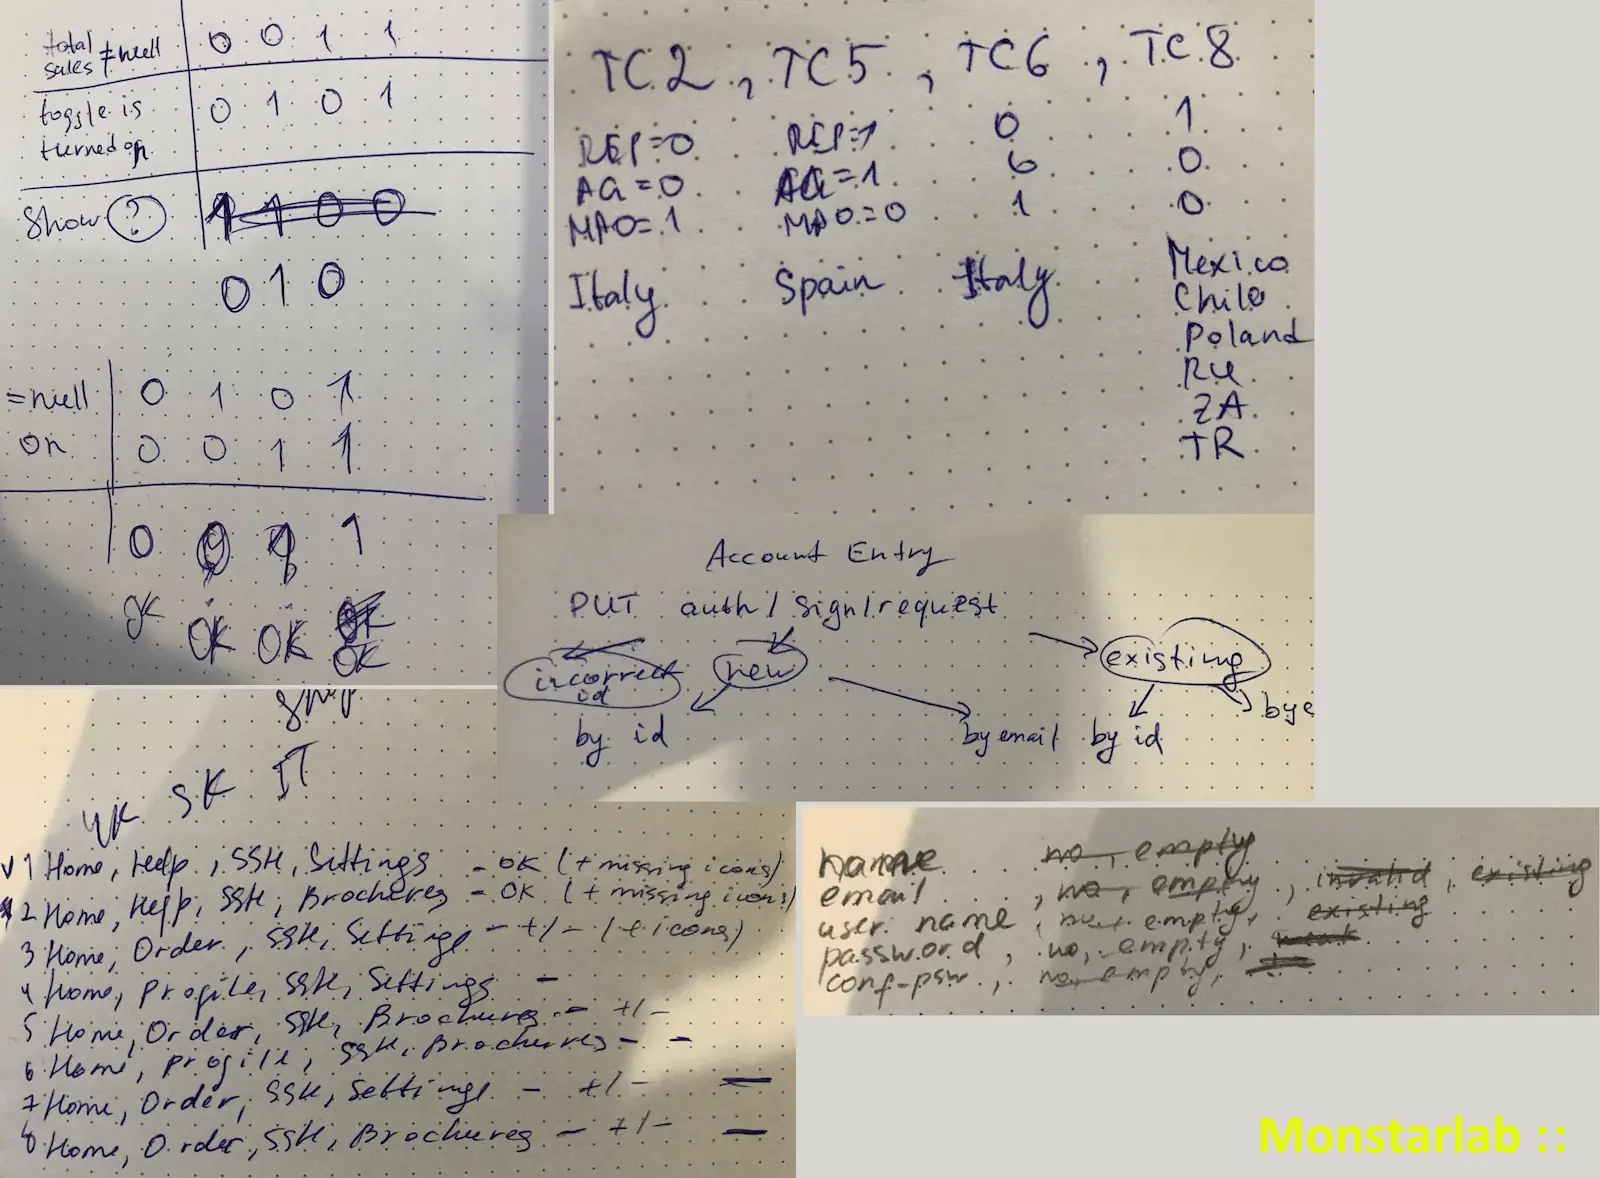 total sales ≠ null 0 0 1 1
toggle is turned on 0 1 0 1
Show ? 1 1 0 0
0 1 0
= null 0 1 0 1
on 0 0 1 1
0 1
OK OK OK OK
TC2, TC5, TC6, TC8
REP=0 REP=1 0 1
AG=0 AG=1 0 0
MAO=1 MAO=0 1 0
Italy Spain Italy Mexico
Chile
Poland
RU
ZA
TR
Account Entry
PUT auth/sign/request
incorrect id new existing
by id by email by id by e
UK SK IT
√ 1 Home, Help, SSH, Settings - OK (+ missing icons)
2 Home, Help, SSH, Brochures - OK (+ missing icons)
3 Home, Order, SSH, Settings - +/- (+ icons)
4 Home, Profile, SSH, Settings -
5 Home, Order, SSH, Brochures - +/-
6 Home, Profile, SSH, Brochures - -
7 Home, Order, SSH, Settings - +/- —
8 Home, Order, SSH, Brochures - +/- —
name no, empty
email, no, empty, invalid, existing
user name, empty, existing
password, no, empty, weak
conf-psw, no, empty,
Monstarlab ::